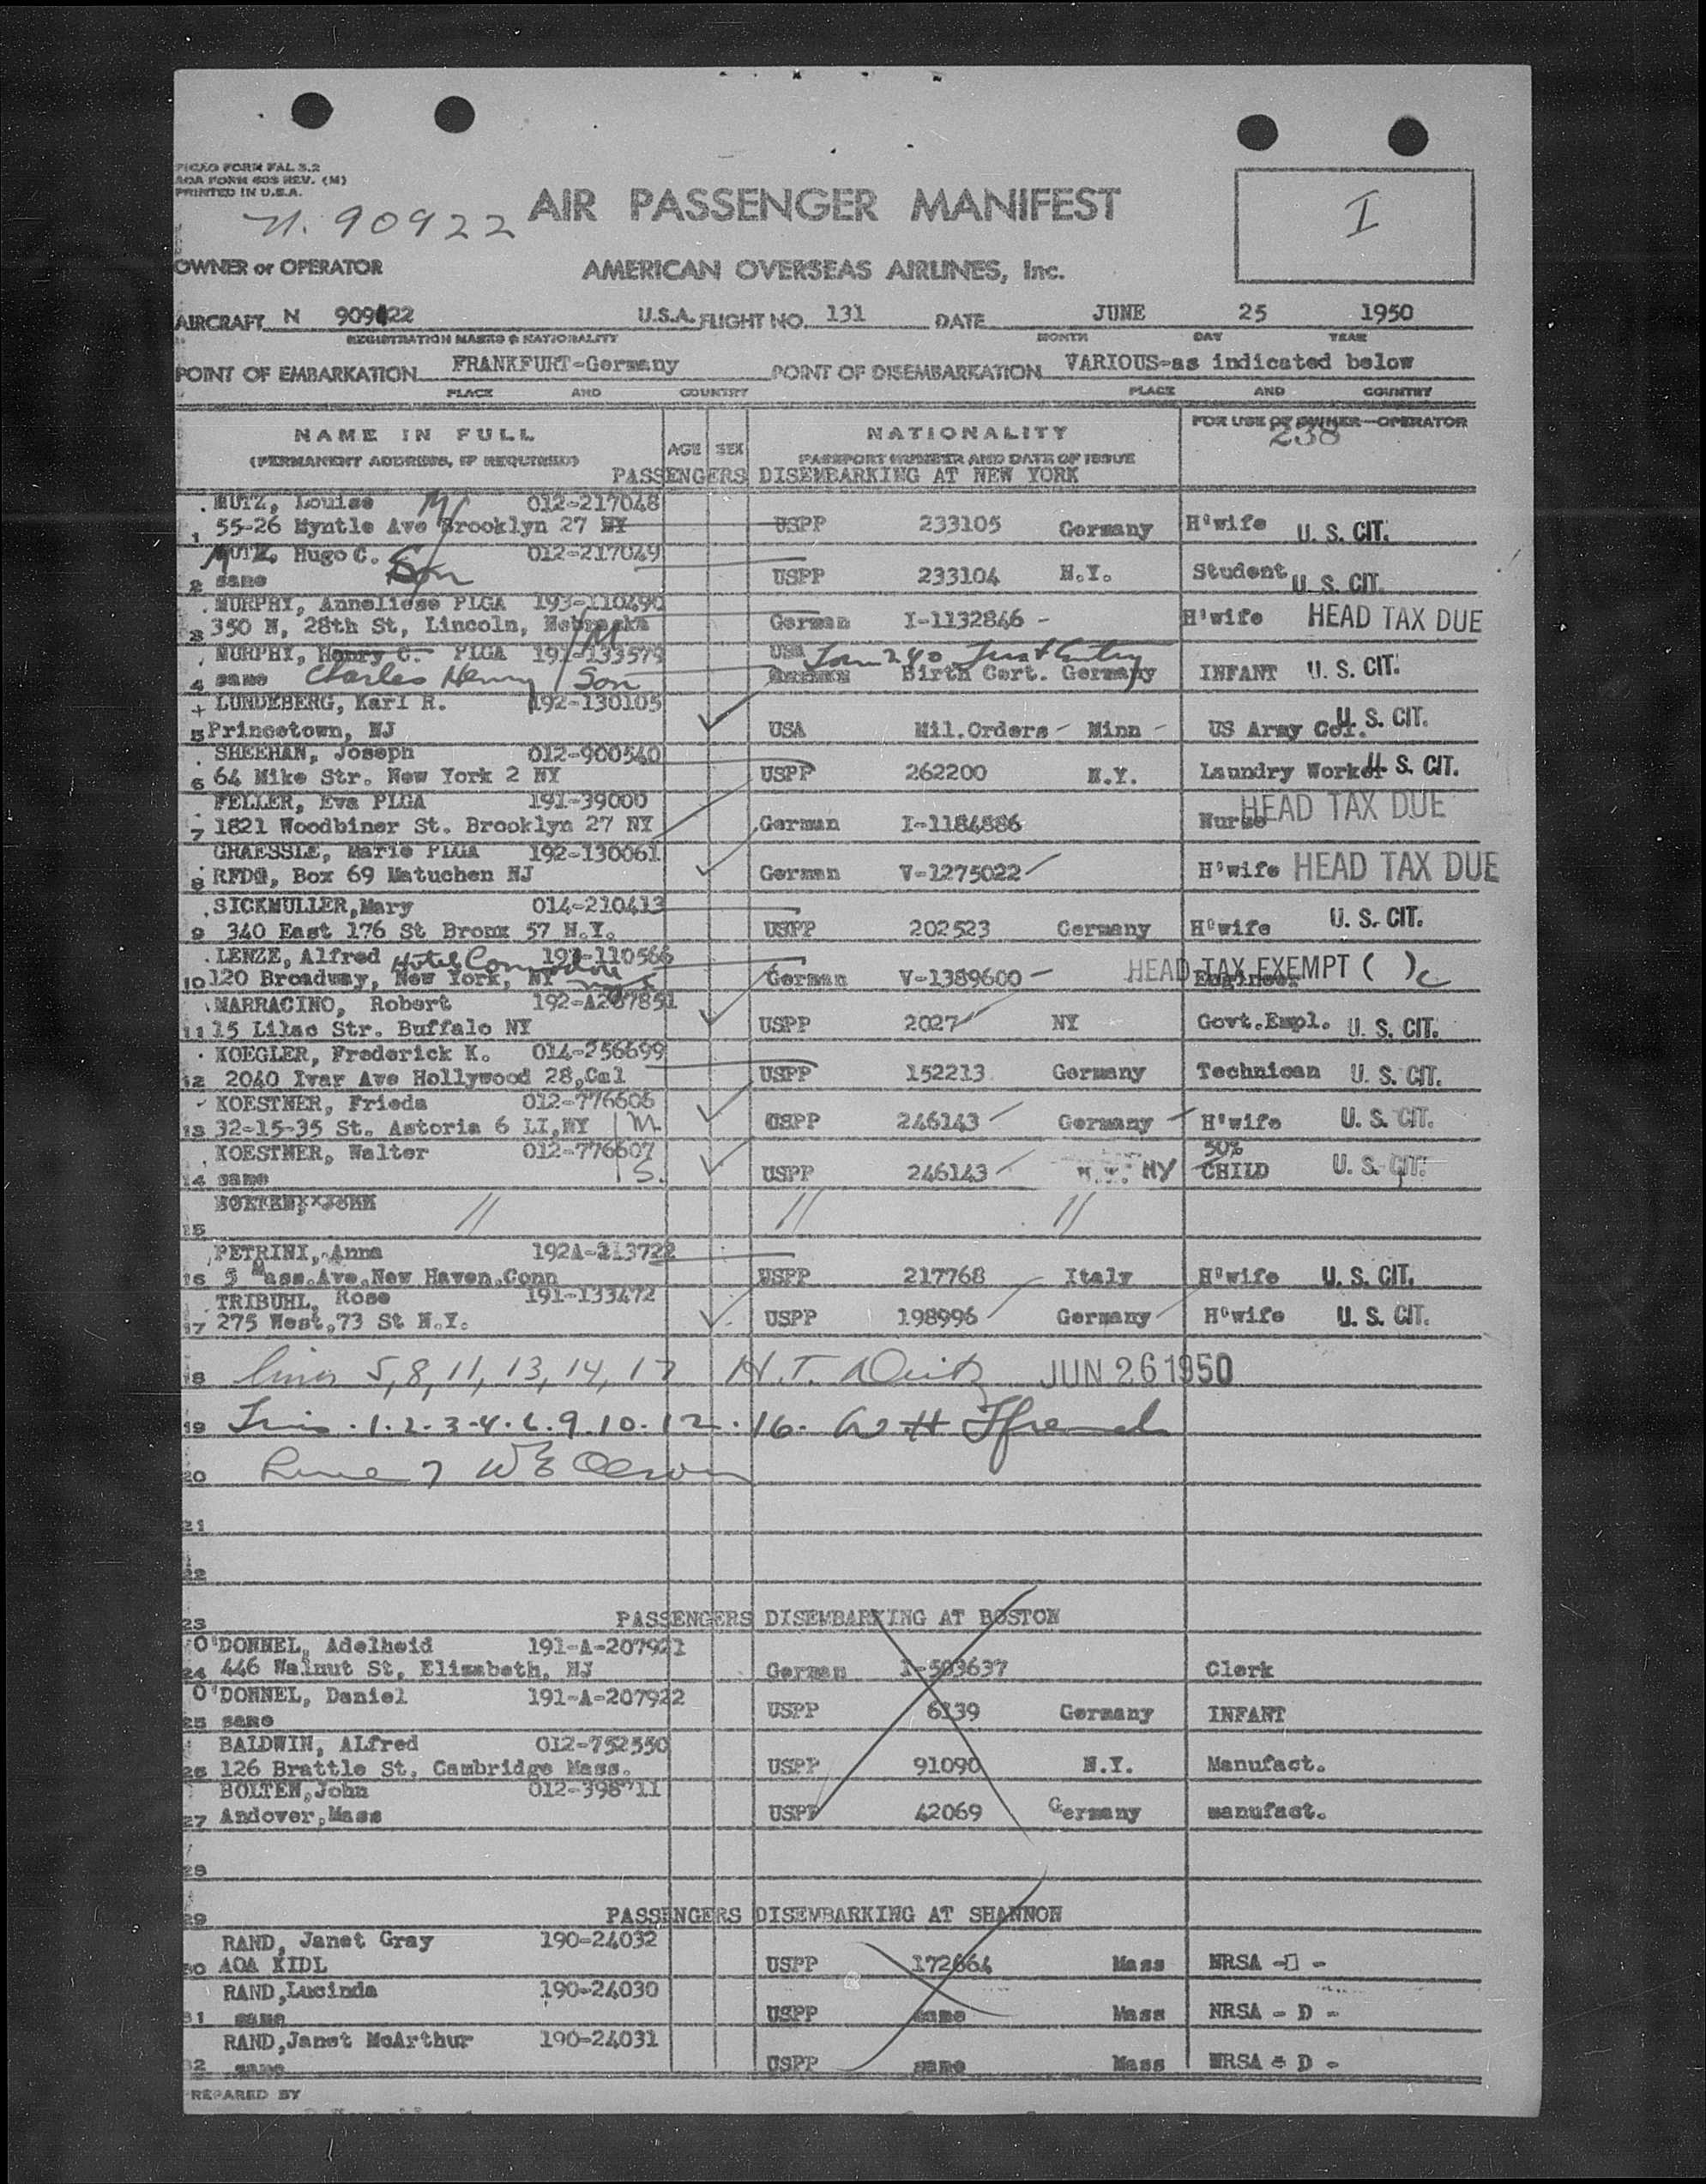 PICAO FORM FAL 3.2
AOA FORM 603 REV. (M)
PRINTED IN U.S.A.
N. 90922
AIR PASSENGER MANIFEST
I
OWNER or OPERATOR
AMERICAN OVERSEAS AIRLINES, Inc.
AIRCRAFT N 90922 U.S.A. FLIGHT NO. 131 DATE JUNE 25 1950
REGISTRATION MARKS & NATIONALITY MONTH DAY YEAR
POINT OF EMBARKATION FRANKFURT-Germany POINT OF DISEMBARKATION VARIOUS-as indicated below
PLACE AND COUNTRY PLACE AND COUNTRY
NAME IN FULL AGE SEX NATIONALITY FOR USE OF OWNER-OPERATOR
238
(PERMANENT ADDRESS, IF REQUIRED) PASSPORT NUMBER AND DATE OF ISSUE
PASSENGERS DISEMBARKING AT NEW YORK
MUTZ, Louise M 012-217048
1 55-26 Myntle Ave Brooklyn 27 NY USPP 233105 Germany H'wife U. S. CIT.
MUTZ, Hugo C. Son 012-217049
2 same USPP 233104 N.Y. Student U. S. CIT.
MURPHY, Anneliese PLGA 193-110490
3 350 N, 28th St, Lincoln, Nebraska M German I-1132846 - H'wife HEAD TAX DUE
MURPHY, Henry C. PLGA 191-133579 USA
4 same Charles Henry Son Birth Cert. Germany INFANT U. S. CIT.
LUNDEBERG, Karl R. 192-130105
5 Princetown, NJ USA Mil.Orders - Minn - US Army Col. U. S. CIT.
SHEEHAN, Joseph 012-900540
6 64 Mike Str. New York 2 NY USPP 262200 N.Y. Laundry Worker U. S. CIT.
FELLER, Eva PLGA 191-39000
7 1821 Woodbiner St. Brooklyn 27 NY German I-1184886 Nurse HEAD TAX DUE
GRAESSLE, Marie PLGA 192-130061
8 RFD@, Box 69 Matuchen NJ German V-1275022 H'wife HEAD TAX DUE
SICKMULLER,Mary 014-210413
9 340 East 176 St Bronx 57 N.Y. USPP 202523 Germany H'wife U. S. CIT.
LENZE, Alfred Hotel Commodore 193-110566
10 120 Broadway, New York, NY German V-1389600 - Engineer HEAD TAX EXEMPT ( ) c
MARRACINO, Robert 192-A207851
11 15 Lilac Str. Buffalo NY USPP 2027 NY Govt.Empl. U. S. CIT.
KOEGLER, Frederick K. 014-256699
12 2040 Ivar Ave Hollywood 28,Cal USPP 152213 Germany Technican U. S. CIT.
KOESTNER, Frieda 012-776606
13 32-15-35 St. Astoria 6 LI,NY M USPP 246143 Germany H'wife U. S. CIT.
KOESTNER, Walter 012-776607 50%
14 same S. USPP 246143 NY CHILD U. S. CIT.
15 // // //
PETRINI, Anna 192A-213722
16 5 Mass.Ave.New Haven.Conn USPP 217768 Italy H'wife U. S. CIT.
TRIBUHL, Rose 191-133472
17 275 West,73 St N.Y. USPP 198996 Germany H'wife U. S. CIT.
18 Lines 5, 8, 11, 13, 14, 17 H.T. JUN 26 1950
19 1. 2. 3-4. 6. 9. 10. 12. 16.
20 Line 7
21
22
23 PASSENGERS DISEMBARKING AT BOSTON
O'DONNEL, Adelheid 191-A-207921
24 446 Walnut St, Elizabeth, NJ German I-503637 Clerk
O'DONNEL, Daniel 191-A-207922
25 same USPP 6139 Germany INFANT
BALDWIN, ALfred 012-752550
26 126 Brattle St, Cambridge Mass. USPP 91090 N.Y. Manufact.
BOLTEN,John 012-398711
27 Andover,Mass USPP 42069 Germany manufact.
28
29 PASSENGERS DISEMBARKING AT SHANNON
RAND, Janet Gray 190-24032
30 AOA KIDL USPP 172664 Mass NRSA - D -
RAND,Lucinda 190-24030
31 same USPP same Mass NRSA - D -
RAND,Janet McArthur 190-24031
32 same USPP same Mass NRSA - D -
PREPARED BY